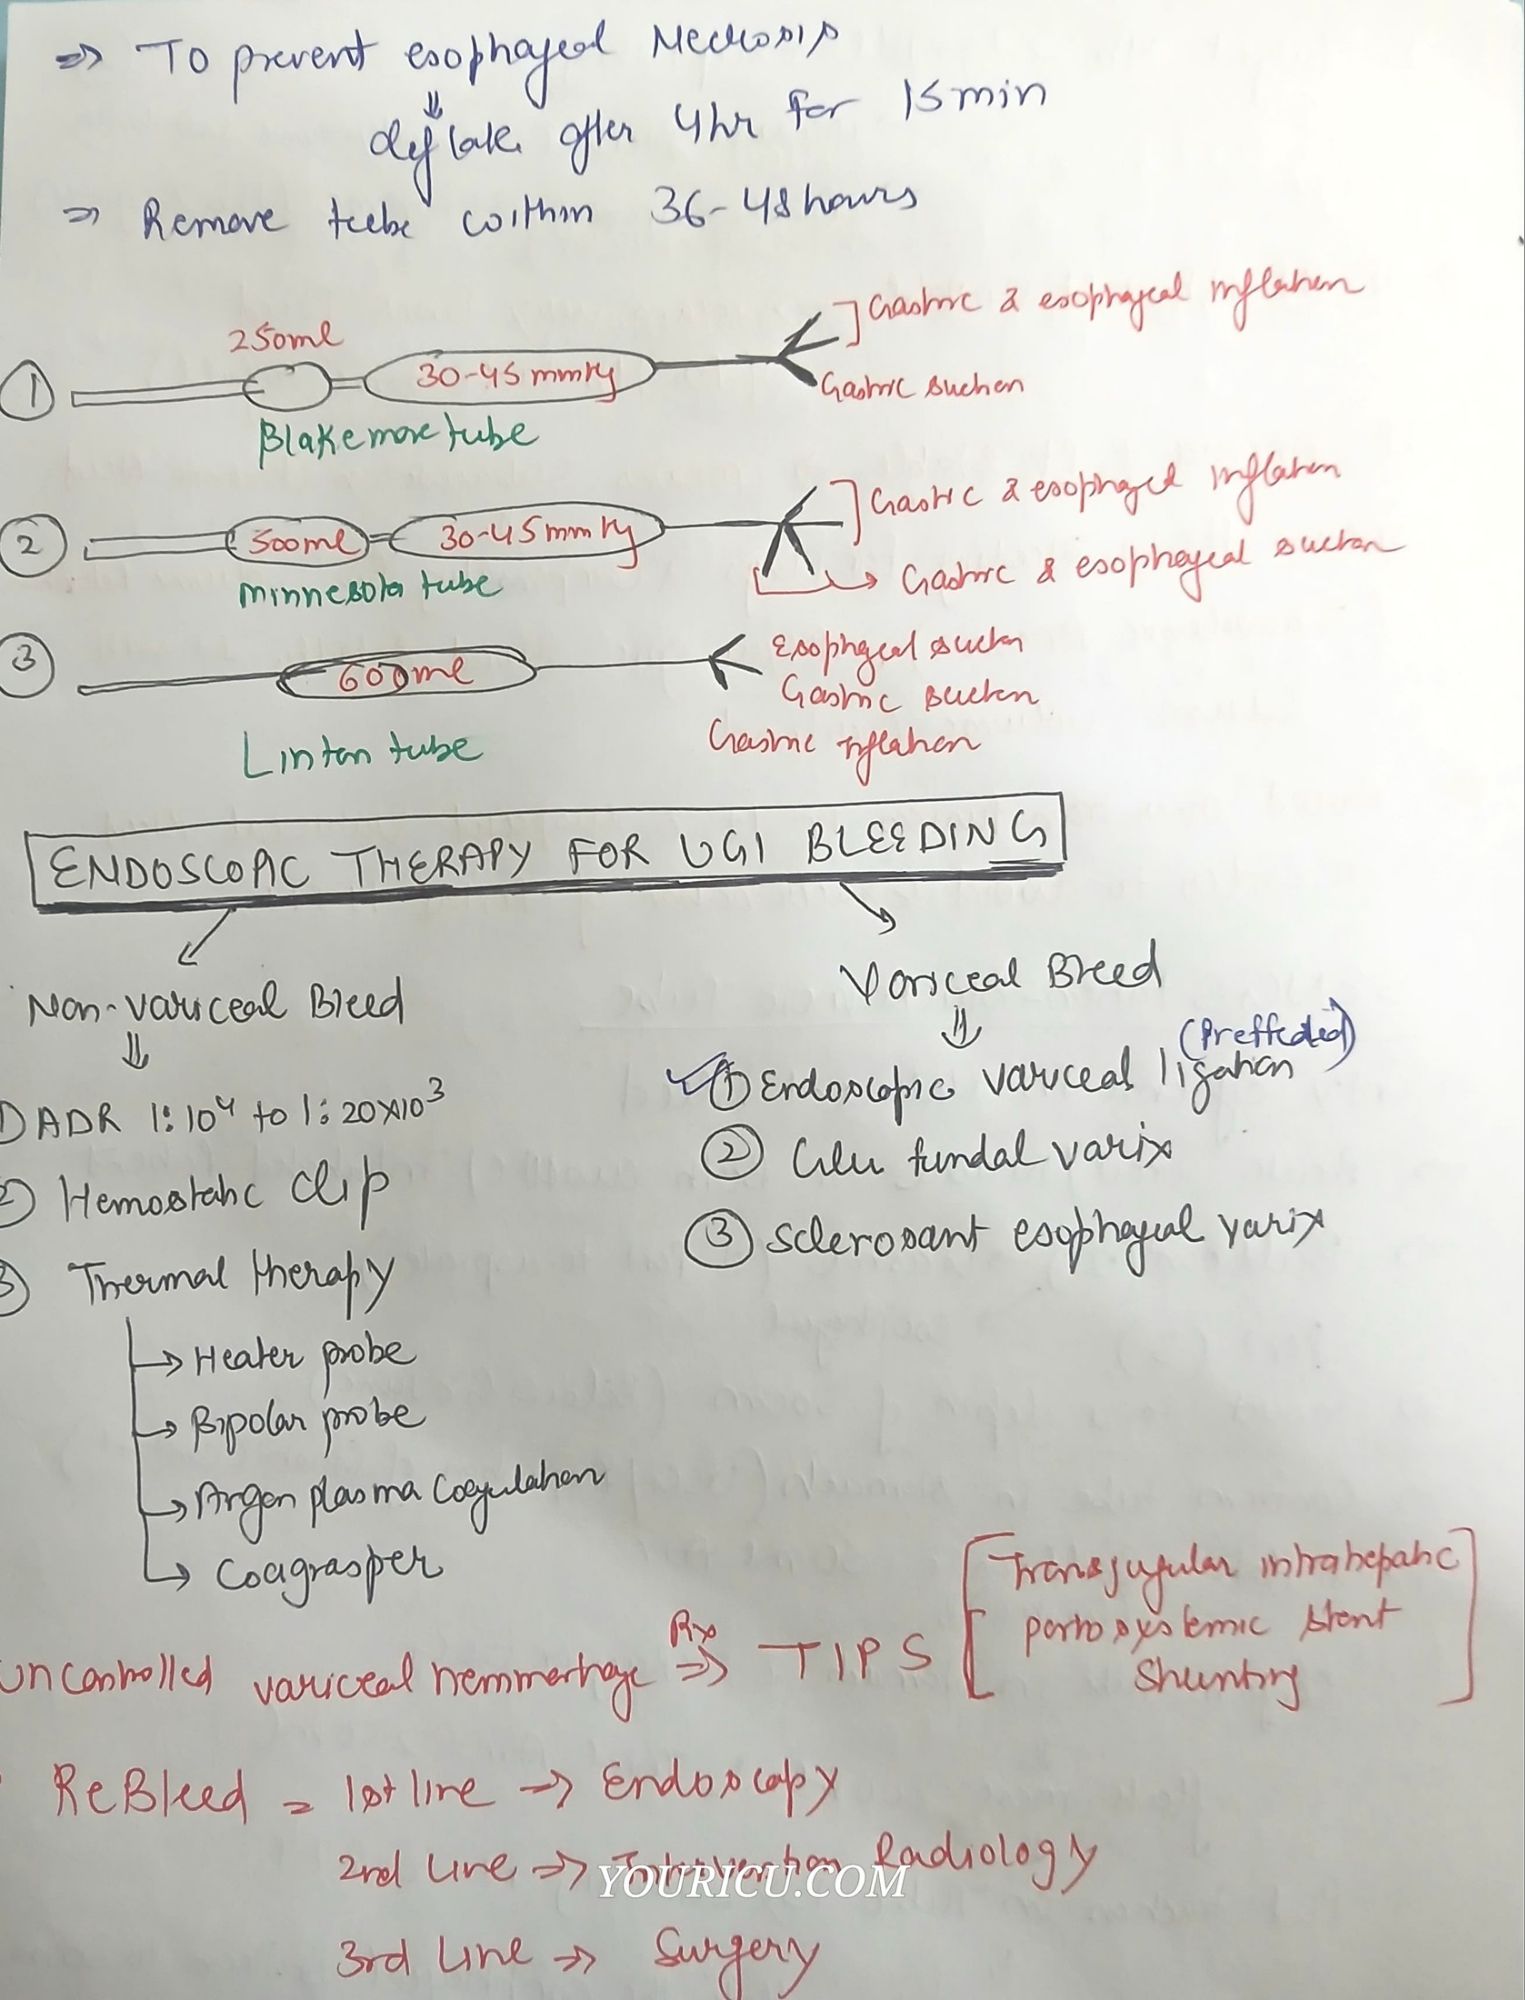 ⇒ To prevent esophageal Necrosis
⇓
deflate after 4hr for 15min
⇒ Remove tube within 36-48hours
① 250ml 30-45 mmHg ] Gastric & esophageal inflation
Gastric suction
Blakemore tube
② 500ml 30-45mmHg ] Gastric & esophageal inflation
→ Gastric & esophageal suction
Minnesota tube
③ 600ml Esophgeal suction
Gastric suction
Gastric inflation
Linton tube
ENDOSCOPIC THERAPY FOR UGI BLEEDING
Non-variceal Bleed
⇓
1) ADR 1:10⁴ to 1:20x10³
② Hemostatic clip
③ Thermal therapy
→ Heater probe
→ Bipolar probe
→ Argon plasma Coagulation
→ Coagrasper
Variceal Bleed
⇓
(Preffeded)
✓① Endoscopic variceal ligation
② Glu fundal varix
③ Sclerosant esophageal varix
Uncontrolled variceal hemmorhage Rx ⇒ TIPS [Transjugular intrahepatic
portosystemic stent
Shunting]
ReBleed = 1st line → Endoscopy
2nd Line ⇒ Intervention Radiology
YOURICU.COM
3rd Line ⇒ Surgery